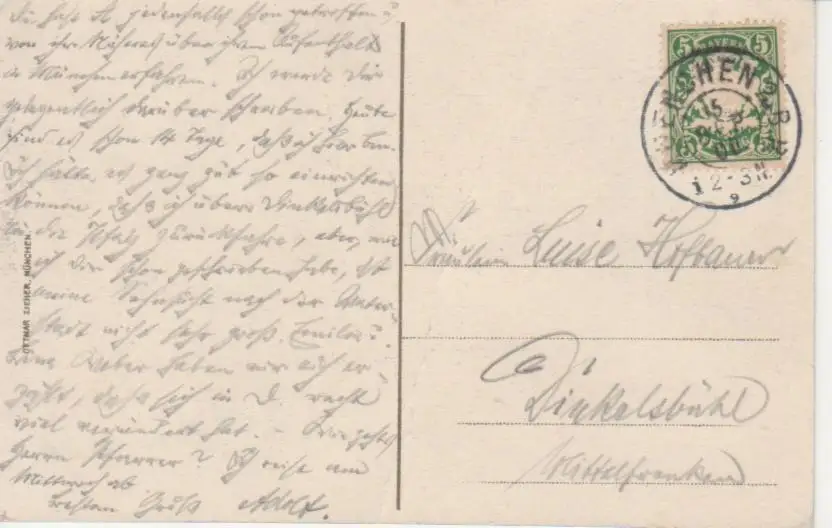 Du hast A. jedenfalls schon getroffen u.
von ihr Näheres über ihren Aufenthalt
in München erfahren. Ich werde Dir
gelegentlich darüber schreiben. Heute
sind es schon 14 Tage, daß ich hier bin.
Ich hätte es ganz gut so einrichten
können, daß ich über Dinkelsbühl
in die Pfalz zurückfahre, aber, wie
ich Dir schon geschrieben habe, ist
meine Sehnsucht nach der
stadt nicht sehr groß. Emilie u.
Weber haben mir auch er-
zählt, daß sich in D. recht
viel verändert hat. - Wie gehts
Herrn Pfarrer? Ich reise am
Mittwoch ab
besten Gruß Adolf.
OTTMAR ZIEHER, MÜNCHEN
5 BAYERN 5
5 5
MÜNCHEN 2 B.P.
15
SEP
12-3N.
9
Fräulein Luise Hofbauer
Dinkelsbühl
Mittelfranken